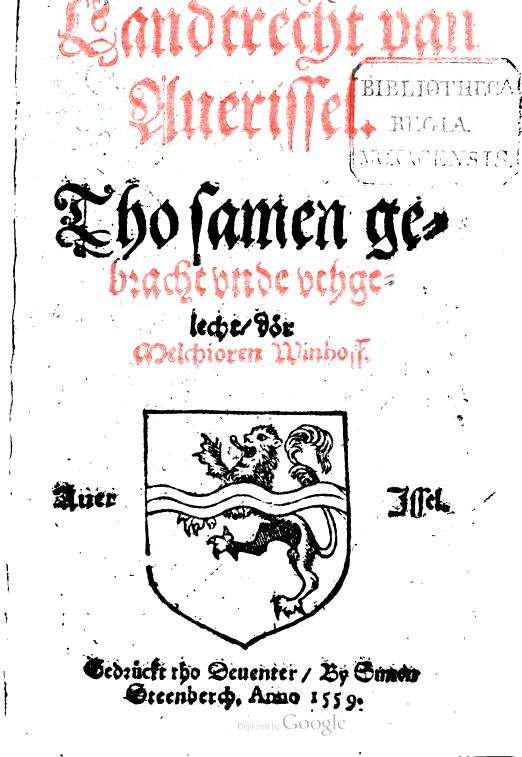 Landtrecht van
Auerissel.
BIBLIOTHECA
REGIA
MONACENSIS.
Tho samen ge-
bracht vnde vthge-
lecht/ dör
Melchioren Winhoff.
Auer
Issel.
Gedrückt tho Deuenter / By Simon
Steenberch, Anno 1559.
Digitized by Google